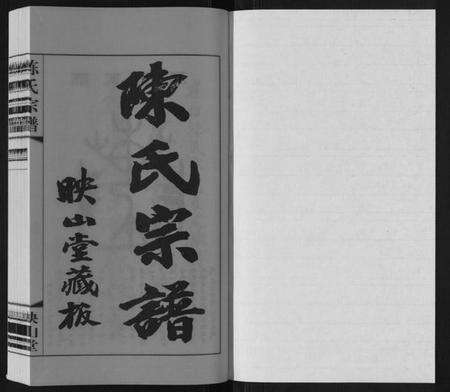 陳氏宗譜
映山堂藏板
陈氏宗譜
映山堂